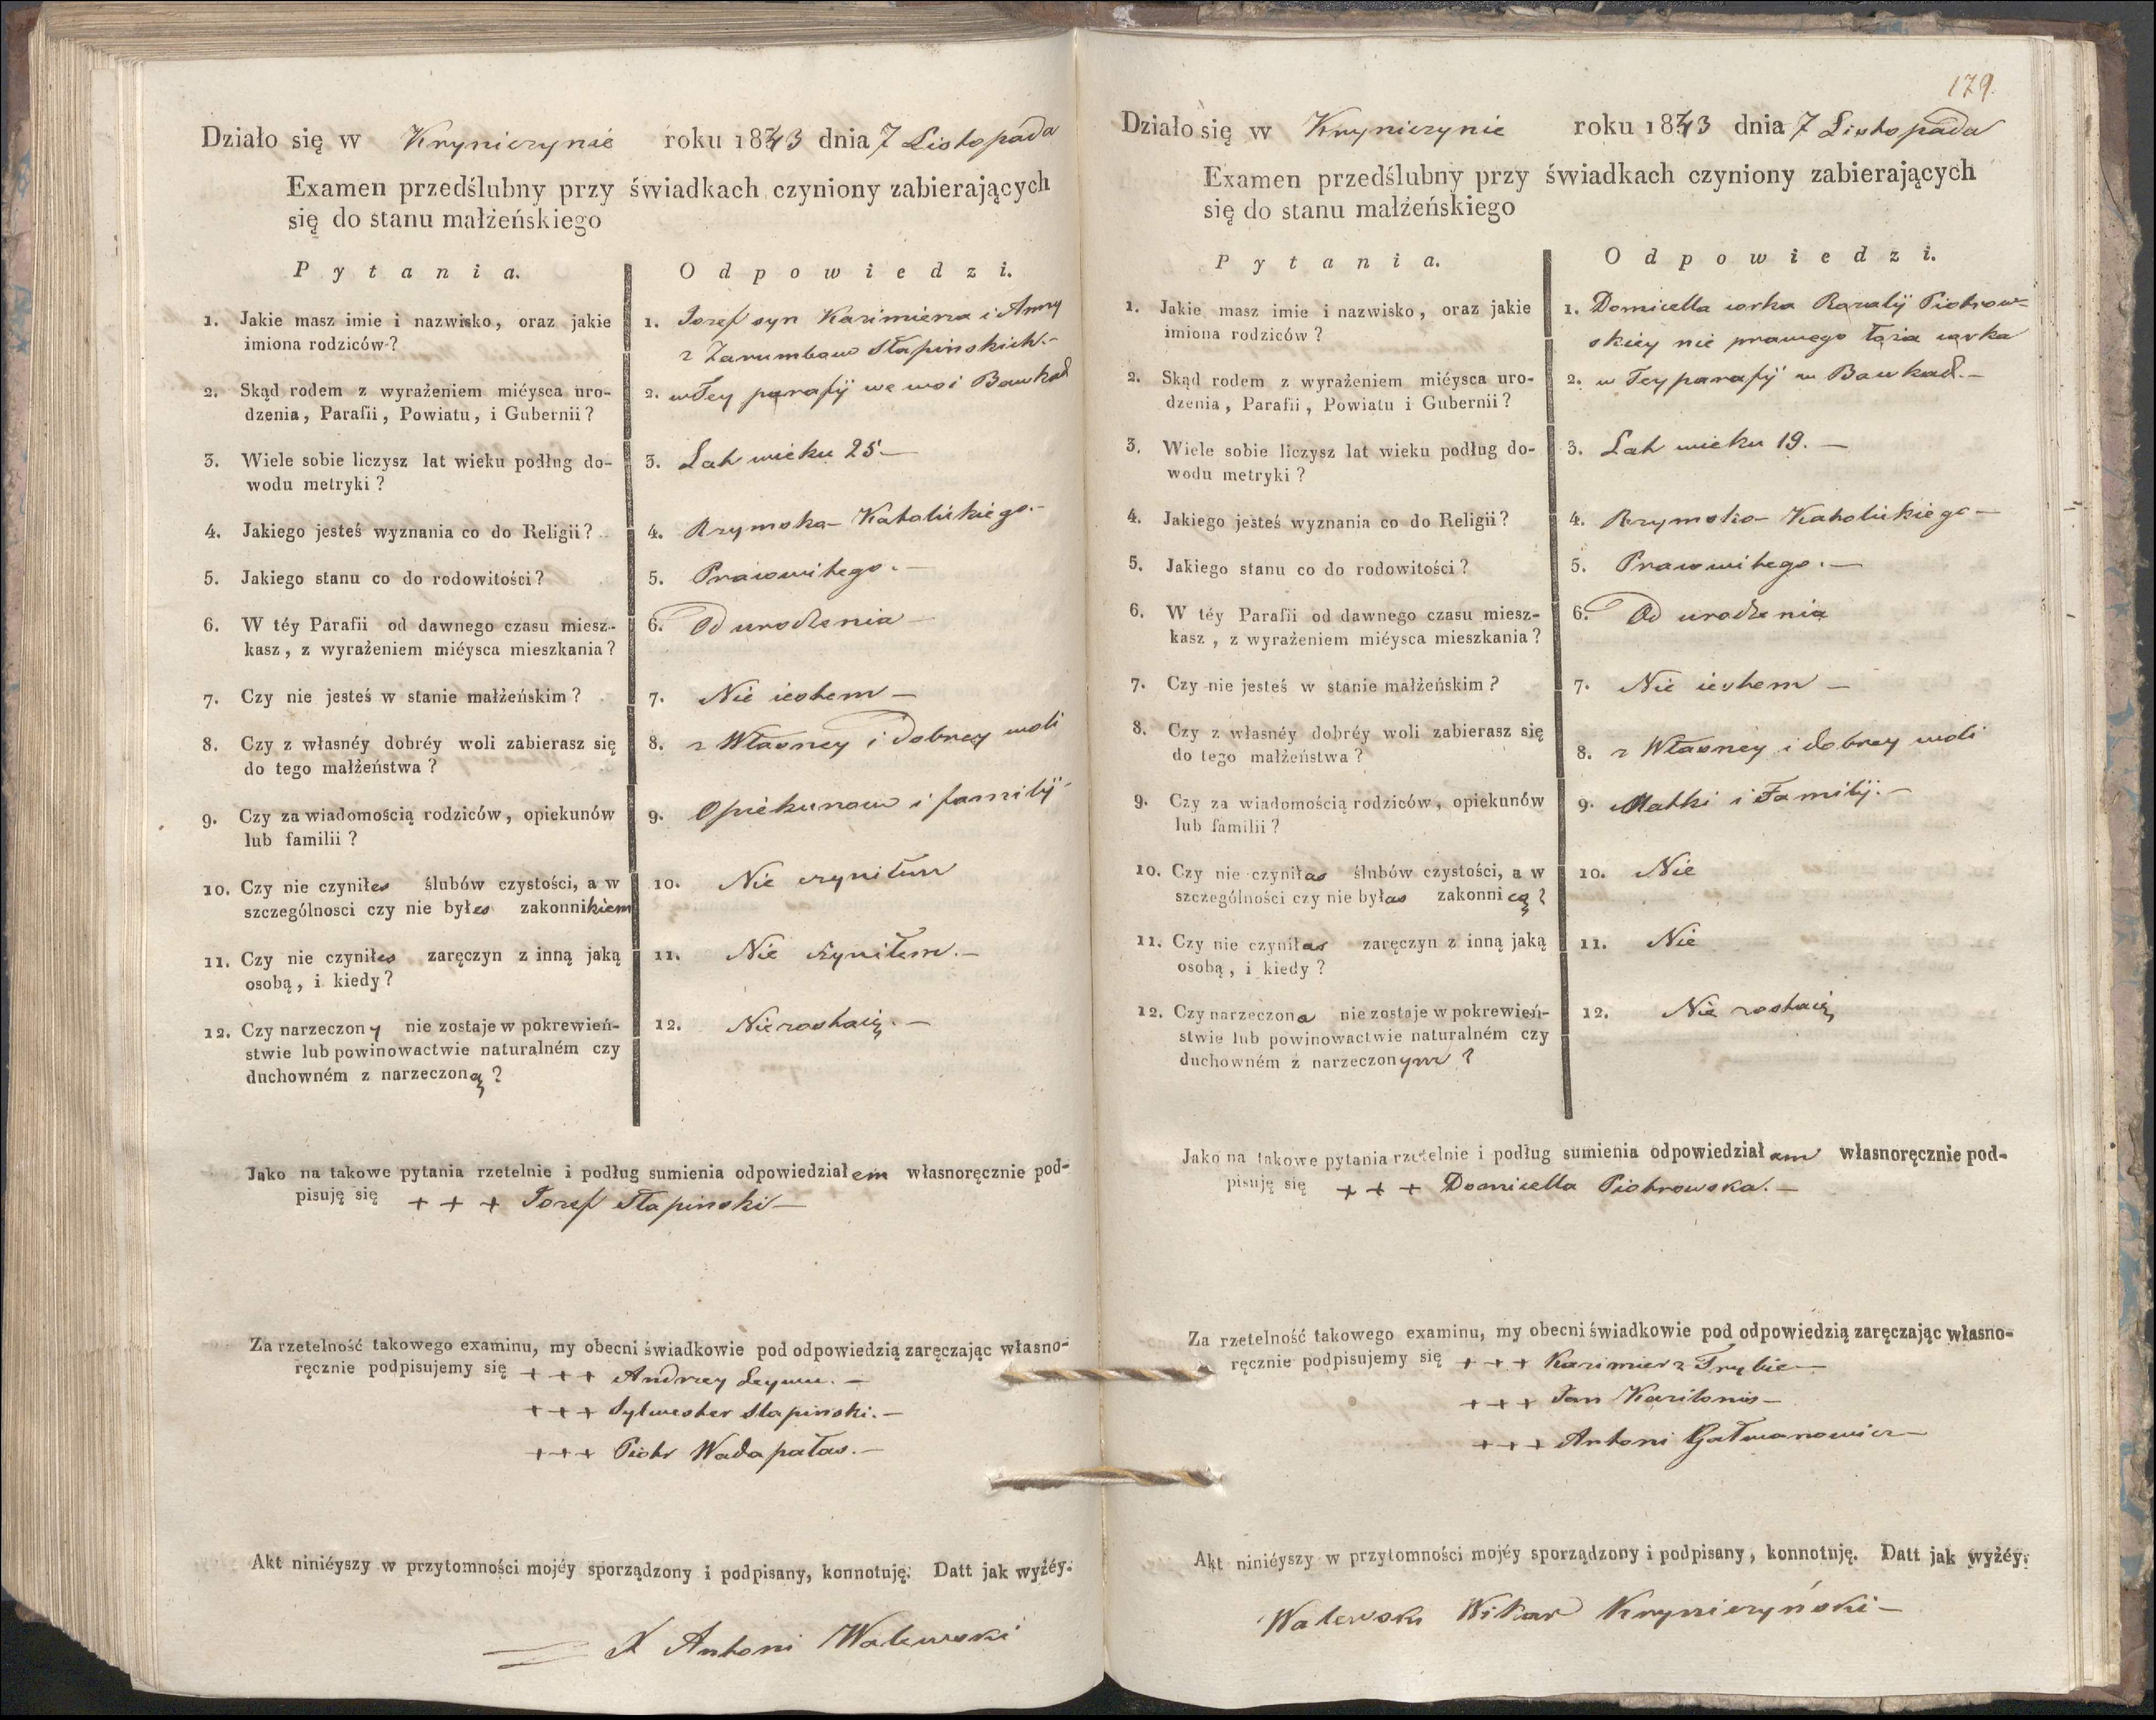 Działo się w Kryniczynie roku 1843 dnia 7 Listopada
Examen przedślubny przy świadkach czyniony zabierających
się do stanu małżeńskiego
Pytania.
Odpowiedzi.
1. Jakie masz imie i nazwisko, oraz jakie
imiona rodziców?
1. Jozef syn Kazimierza i Anny
z Zarumbow Słapinskich.-
2. Skąd rodem z wyrażeniem miéysca uro-
dzenia, Parafii, Powiatu, i Gubernii?
2. w Tey parafij we wsi
3. Wiele sobie liczysz lat wieku podług do-
wodu metryki?
3. Lat wieku 25 —
4. Jakiego jesteś wyznania co do Religii?
4. Rzymsko-Katolickiego.-
5. Jakiego stanu co do rodowitości?
5. Prawowitego. —
6. W téy Parafii od dawnego czasu miesz-
kasz, z wyrażeniem miéysca mieszkania?
6. Od urodzenia —
7. Czy nie jesteś w stanie małżeńskim?
7. Nie iestem —
8. Czy z własnéy dobréy woli zabierasz się
do tego małżeństwa?
8. z Własney i dobrey woli
9. Czy za wiadomością rodziców, opiekunów
lub familii?
9. Opiekunow i familij
10. Czy nie czyniłes ślubów czystości, a w
szczególnosci czy nie byłes zakonnikiem
10. Nie czyniłem
11. Czy nie czyniłes zaręczyn z inną jaką
osobą, i kiedy?
11. Nie czyniłem. —
12. Czy narzeczony nie zostaje w pokrewień-
stwie lub powinowactwie naturalném czy
duchowném z narzeczoną?
12. Nie zostaię. —
Jako na takowe pytania rzetelnie i podług sumienia odpowiedziałem własnoręcznie pod-
pisuję się + + + Jozef Słapinski —
Za rzetelność takowego examinu, my obecni świadkowie pod odpowiedzią zaręczając własno-
ręcznie podpisujemy się + + + Andrzey
+ + + Sylwester Słapiński. —
+ + + Piotr Wadapałas. —
Akt niniéyszy w przytomności mojéy sporządzony i podpisany, konnotuję. Datt jak wyżéy.
X Antoni Walewski
179.
Działo się w Kryniczynie roku 1843 dnia 7 Listopada
Examen przedślubny przy świadkach czyniony zabierających
się do stanu małżeńskiego
Pytania.
Odpowiedzi.
1. Jakie masz imie i nazwisko, oraz jakie
imiona rodziców?
1. Domicella corka Rozalij Piotrow-
skiey nie prawego łoża corka
2. Skąd rodem z wyrażeniem miéysca uro-
dzenia, Parafii, Powiatu i Gubernii?
2. w Tey parafij
3. Wiele sobie liczysz lat wieku podług do-
wodu metryki?
3. Lat wieku 19. —
4. Jakiego jesteś wyznania co do Religii?
4. Rzymsko-Katolickiego —
5. Jakiego stanu co do rodowitości?
5. Prawowitego. —
6. W téy Parafii od dawnego czasu miesz-
kasz, z wyrażeniem miéysca mieszkania?
6. Od urodzenia
7. Czy nie jesteś w stanie małżeńskim?
7. Nie iestem —
8. Czy z własnéy dobréy woli zabierasz się
do tego małżeństwa?
8. z Własney i dobrey woli
9. Czy za wiadomością rodziców, opiekunów
lub familii?
9. Matki i Familij. —
10. Czy nie czyniłas ślubów czystości, a w
szczególności czy nie byłas zakonnicą?
10. Nie
11. Czy nie czyniłas zaręczyn z inną jaką
osobą, i kiedy?
11. Nie
12. Czy narzeczona nie zostaje w pokrewień-
stwie lub powinowactwie naturalném czy
duchowném z narzeczonym?
12. Nie zostaię
Jako na takowe pytania rzetelnie i podług sumienia odpowiedziałam własnoręcznie pod-
pisuję się + + + Domicella Piotrowska. —
Za rzetelność takowego examinu, my obecni świadkowie pod odpowiedzią zaręczając własno-
ręcznie podpisujemy się + + + Kazimierz
+ + + Jan
+ + + Antoni Gałwanowicz
Akt niniéyszy w przytomności mojéy sporządzony i podpisany, konnotuję. Datt jak wyżéy.
Walewski Wikar Kryniczyński —